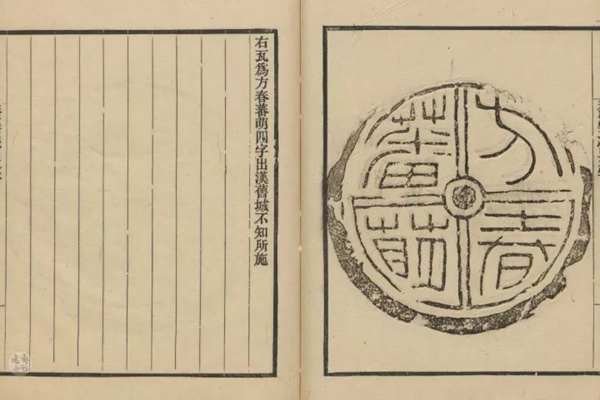 方春
蕃萌
右瓦爲方春蕃萌四字出漢舊城不知所施